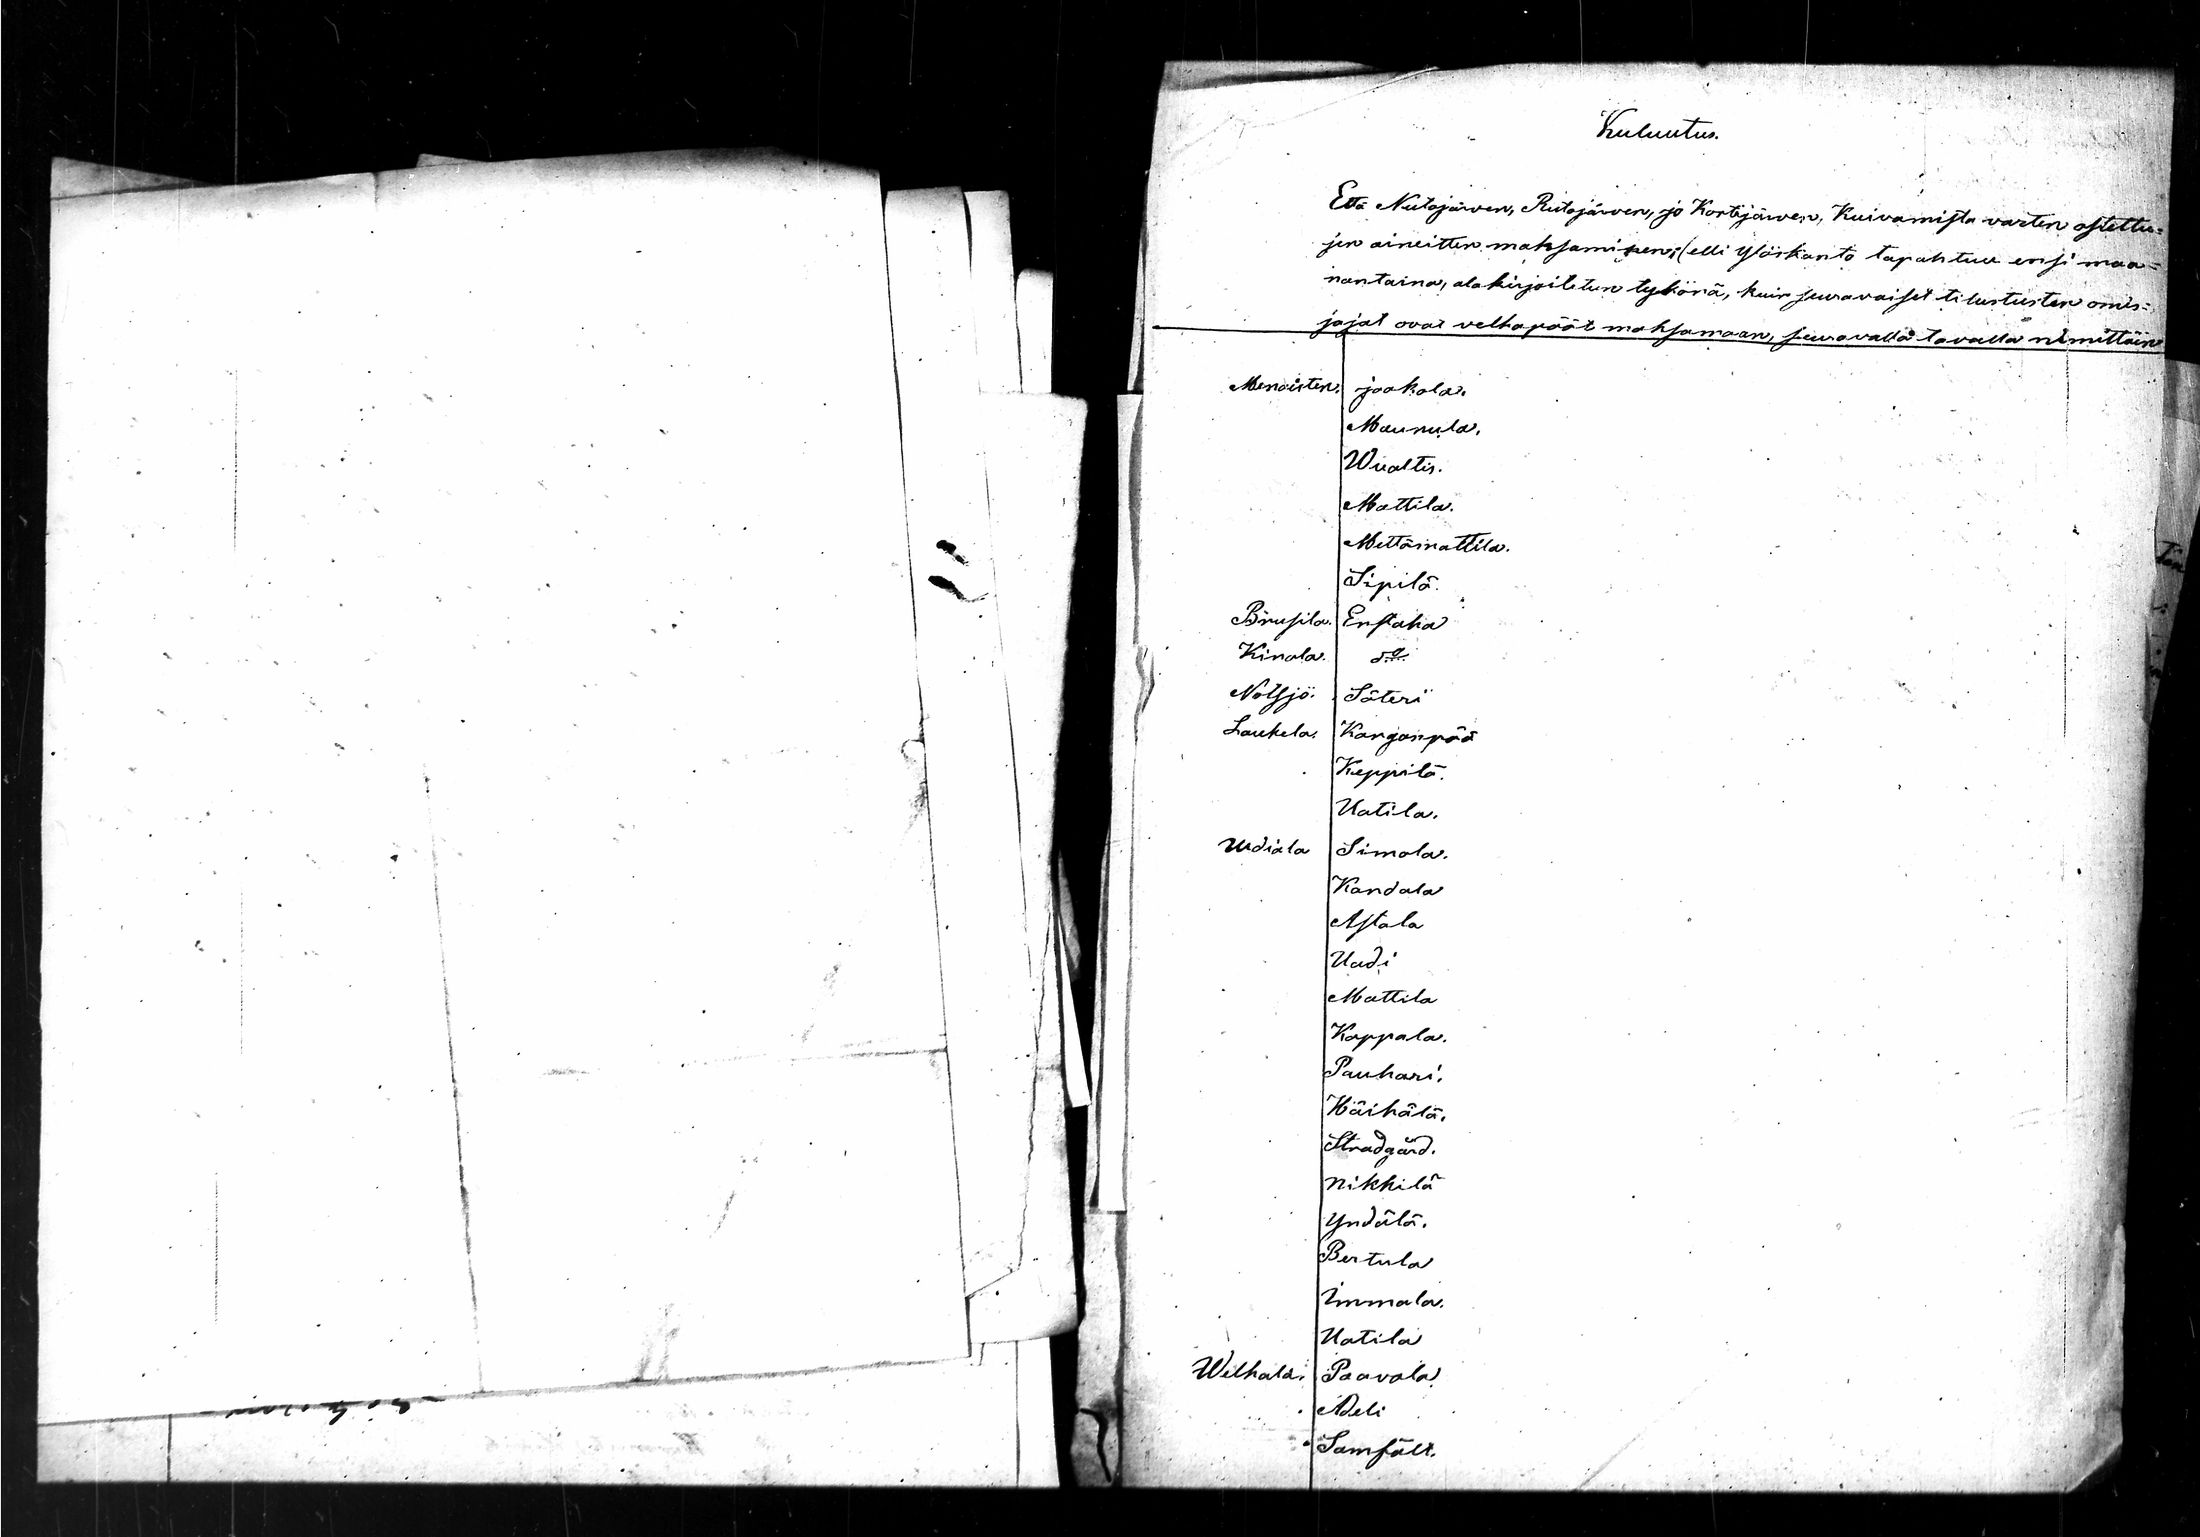 Kuluutus.
Että Nutojärven, Rutojärven, jo Kortejärven, Kuivamista varten ostettu=
jen aineitten maksaminen; (elli Ylöskanto tapahtuu ensi maa=
nantaina, alakirjoitetun tykönä, kuin seuravaiset tilustusten omis=
jajat ovat velkapäät maksamaan, seuravalla tavalla nimittäin
Menoisten. jaakola.
Maunula.
Wualtis.
Mattila.
Mettämattila.
Sipilä.
Brusila. Enstaka
Kinala. d:o
Notsjö. Säteri
Laukela. Kanganpää
Keppilä.
Uotila.
Urdiala Simola.
Kandala
Astala
Uudi
Mattila
Kappala.
Pauhari.
Häihälä.
Stradgård.
Nikkilä
Yndälä.
Bertula
Immala.
Uotila
Welhala. Paavala
Adeli
Samfält.